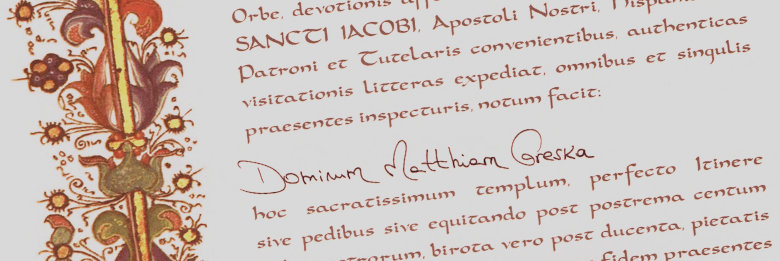 Orbe, devotionis
SANCTI IACOBI, Apostoli Nostri,
Patroni et Tutelaris convenientibus, authenticas
visitationis litteras expediat, omnibus et singulis
praesentes inspecturis, notum facit:
Dominum Matthiam Greska
hoc sacratissimum templum, perfecto Itinere
sive pedibus sive equitando post postrema centum
birota vero post ducenta, pietatis
fidem praesentes